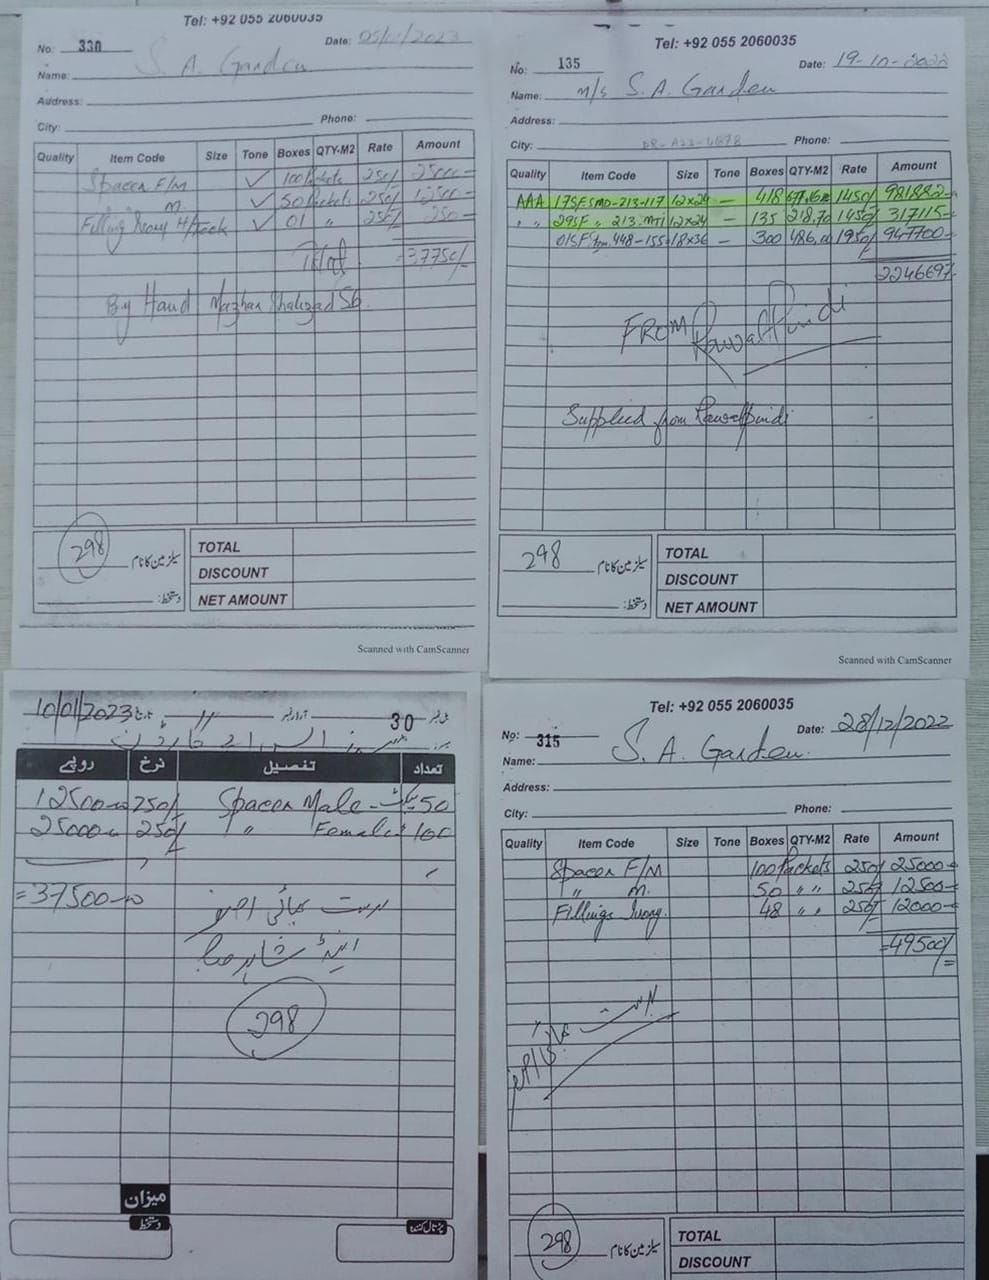 Tel: +92 055 2060035
No: 330 Date: 05/01/2023
Name: S. A. Garden
Address:
City: Phone:
Quality Item Code Size Tone Boxes QTY-M2 Rate Amount
Spacer F/M ✓ 100 Packets 250/ 25000
" M. ✓ 50 Packets 250/ 12500
Filling Ivory ✓ 01 " 250/ 250
Total 37750/
By Hand Mazhar Shahzad Sb.
298 سیلز مین کا نام
دستخط:
TOTAL
DISCOUNT
NET AMOUNT
Scanned with CamScanner
Tel: +92 055 2060035
No: 135 Date: 19-10-2022
Name: M/s S. A. Garden
Address:
City: Phone:
Quality Item Code Size Tone Boxes QTY-M2 Rate Amount
AAA 175FSMD-213-117 12x24 — 418 1450/ 981882
" " 295F " 213. 12x24 — 135 218.70 1450/ 317115
448-155 18x36 — 300 486.00 1950/ 947700
2246697
FROM Rawalpindi
Supplied from Rawalpindi
298 سیلز مین کا نام
دستخط:
TOTAL
DISCOUNT
NET AMOUNT
Scanned with CamScanner
10/01/2023 تاریخ 30
میسرز ایس اے گارڈن
تعداد تفصیل نرخ روپے
12500 250/ Spacer Male 50
25000 250/ " Female 100
=37500
298
میزان
دستخط
Tel: +92 055 2060035
No: 315 Date: 28/12/2022
Name: S. A. Garden
Address:
City: Phone:
Quality Item Code Size Tone Boxes QTY-M2 Rate Amount
Spacer F/M 100 Packets 250/ 25000
" M. 50 " " 250/ 12500
Fillings Ivory. 48 " " 250/ 12000
=49500/=
298 سیلز مین کا نام
TOTAL
DISCOUNT